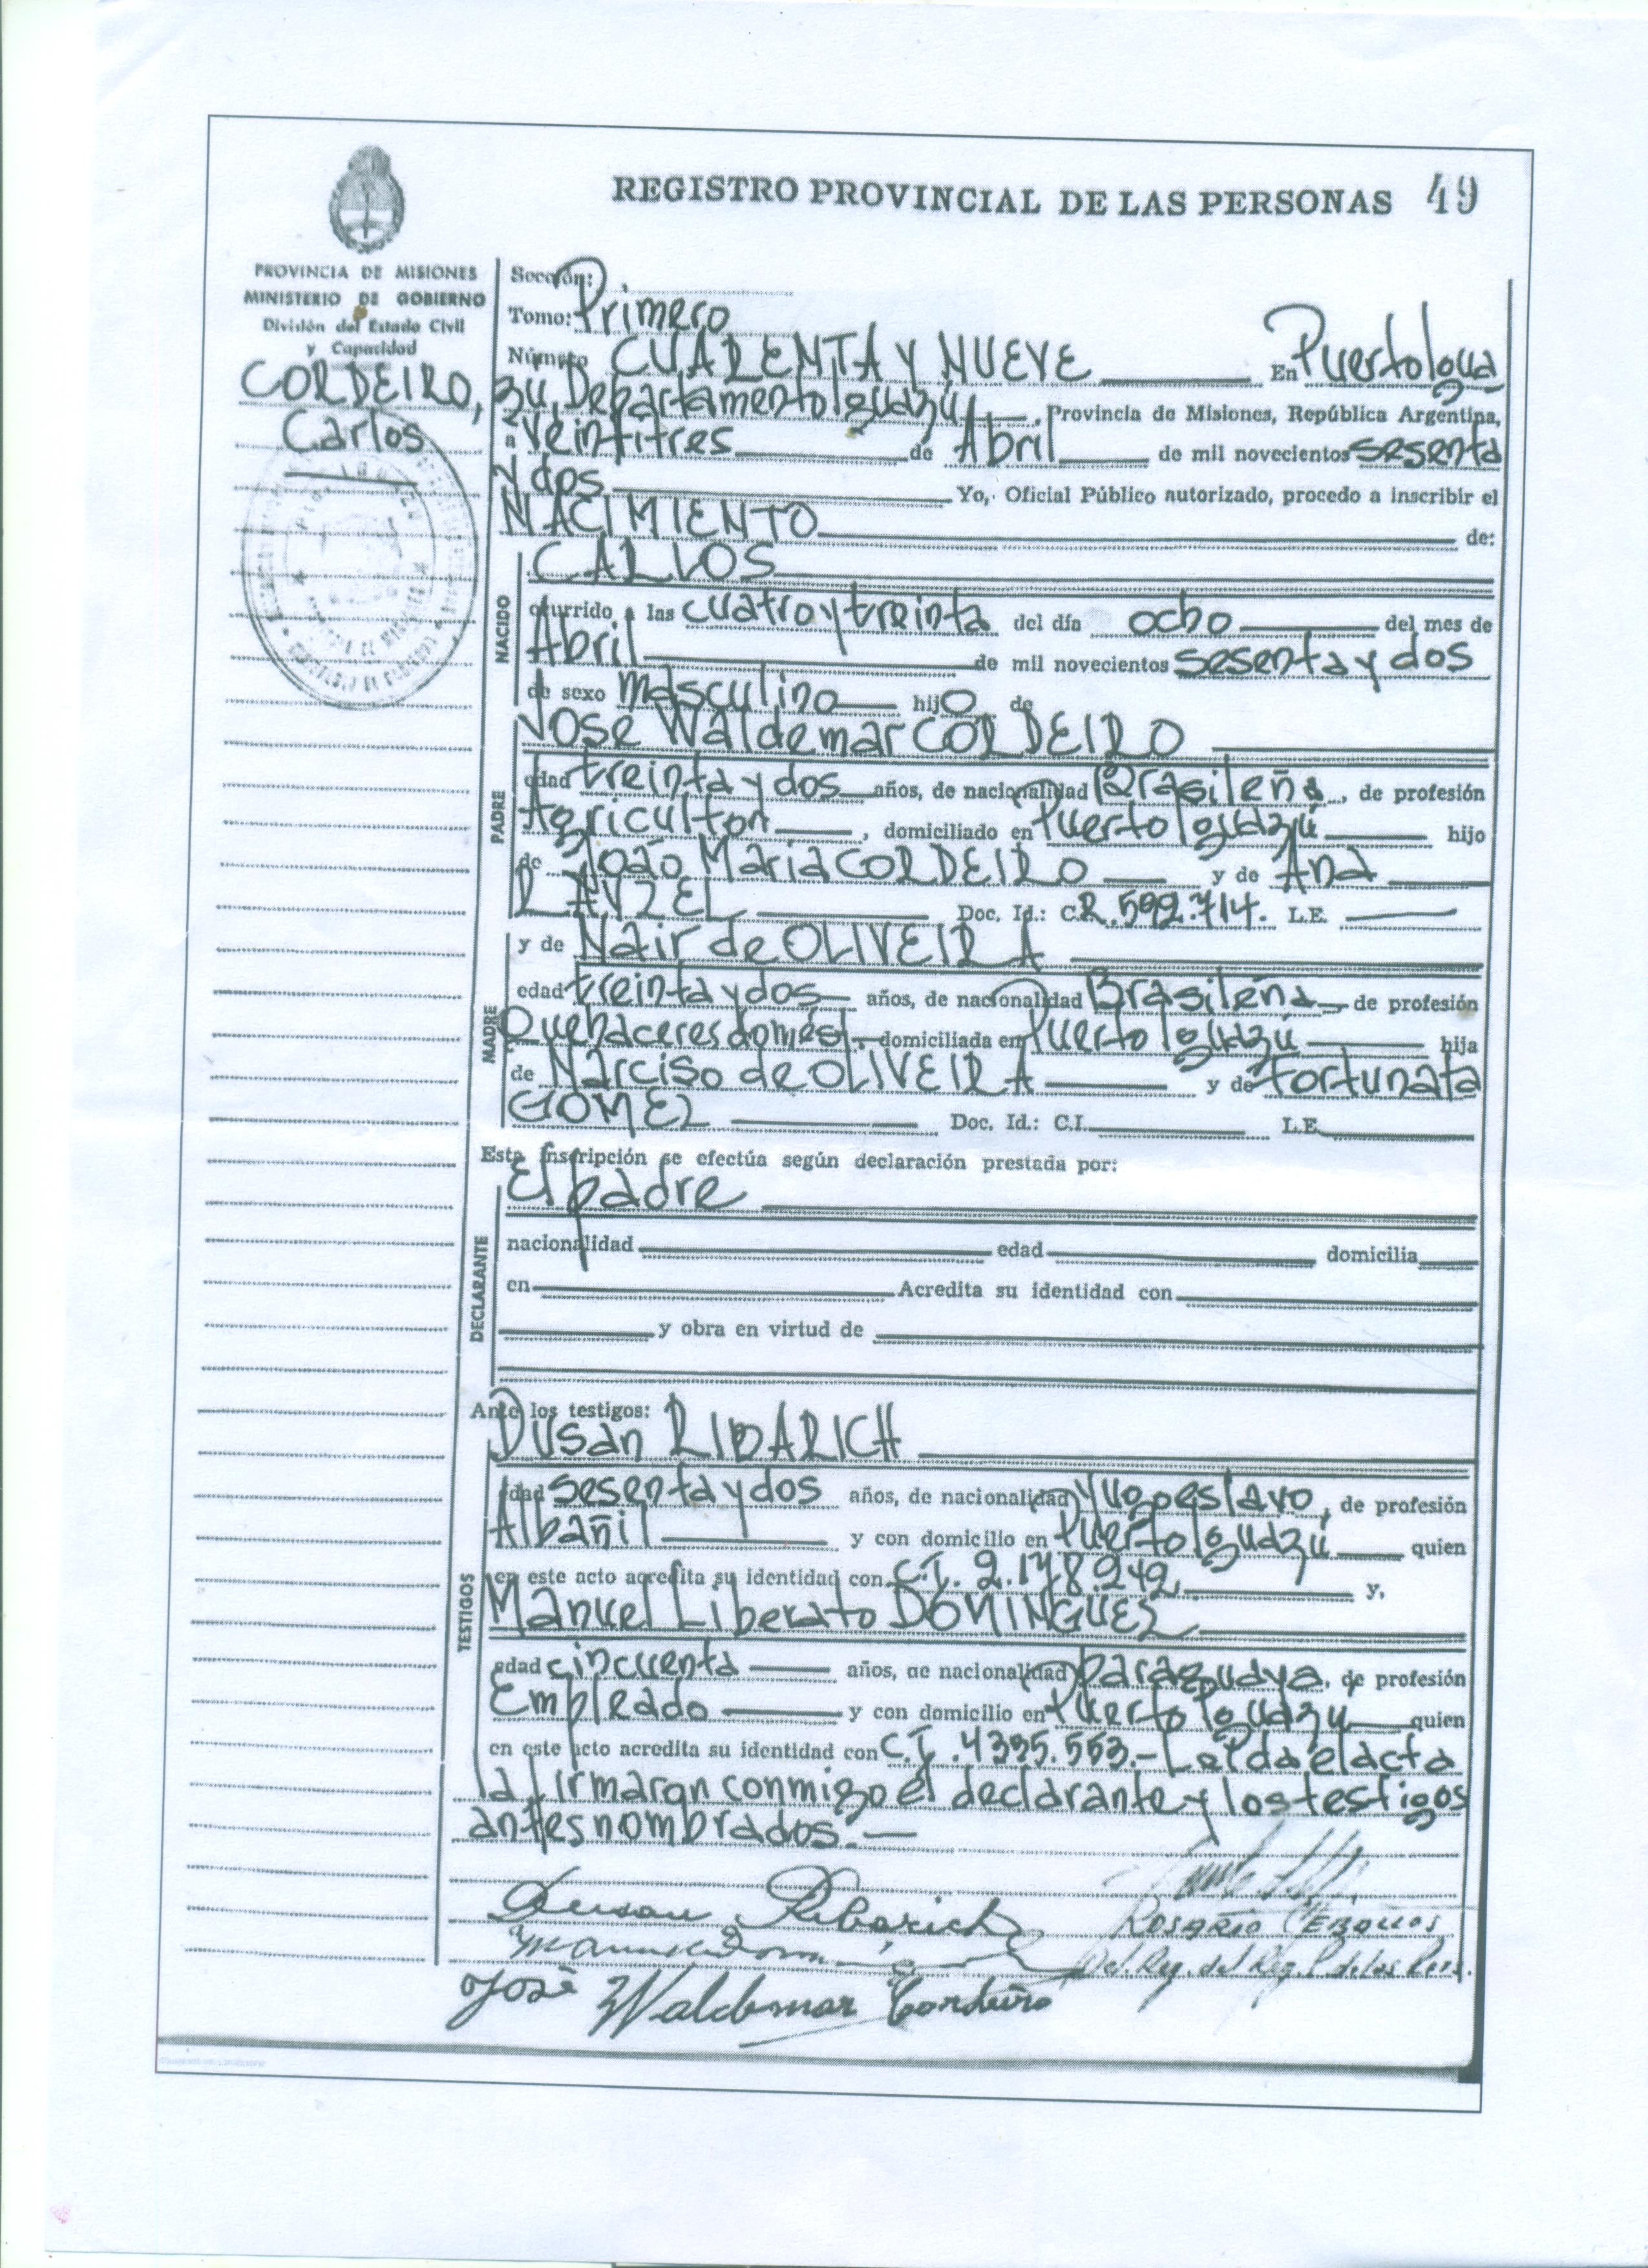 REGISTRO PROVINCIAL DE LAS PERSONAS 49
PROVINCIA DE MISIONES
MINISTERIO DE GOBIERNO
División del Estado Civil
y Capacidad
CORDEIRO,
Carlos
Sección:
Tomo: Primero
Número CUARENTA Y NUEVE En Puerto Igua
zú, Departamento Iguazú, Provincia de Misiones, República Argentina,
a veintitres de Abril de mil novecientos sesenta
y dos Yo, Oficial Público autorizado, procedo a inscribir el
NACIMIENTO de:
CARLOS
NACIDO
ocurrido a las cuatro y treinta del día ocho del mes de
Abril de mil novecientos sesenta y dos
de sexo masculino hijo de
Jose Waldemar CORDEIRO
PADRE
edad treinta y dos años, de nacionalidad Brasileña, de profesión
Agricultor, domiciliado en Puerto Iguazú hijo
de João Maria CORDEIRO y de Ana
Doc. Id.: C.R. 592.714. L.E.
y de Nair de OLIVEIRA
MADRE
edad treinta y dos años, de nacionalidad Brasileña, de profesión
Quehaceres domést. domiciliada en Puerto Iguazú hija
de Narciso de OLIVEIRA y de Fortunata
GOMEZ Doc. Id.: C.I. L.E.
Esta inscripción se efectúa según declaración prestada por:
El padre
DECLARANTE
nacionalidad edad domicilia
en Acredita su identidad con
y obra en virtud de
Ante los testigos:
Dusan RIBARICH
TESTIGOS
edad sesenta y dos años, de nacionalidad Yugoeslavo, de profesión
Albañil y con domicilio en Puerto Iguazú quien
en este acto acredita su identidad con C.I. 2.178.242 y,
Manuel Liberato DOMINGUEZ
edad cincuenta años, de nacionalidad paraguaya, de profesión
Empleado y con domicilio en Puerto Iguazu quien
en este acto acredita su identidad con C.I. 4335.553.- Leida el acta
la firmaron conmigo el declarante y los testigos
antes nombrados.—
Dusan Ribarich
ROSARIO CEBALLOS
Del. Reg. del Reg. P. de las Pers.
José Waldemar Cordeiro